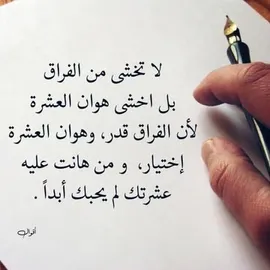 لا تخشى من الفراق
بل اخشى هوان العشرة
لأن الفراق قدر، وهوان العشرة
إختيار، و من هانت عليه
عشرتك لم يحبك أبداً .
أقوال